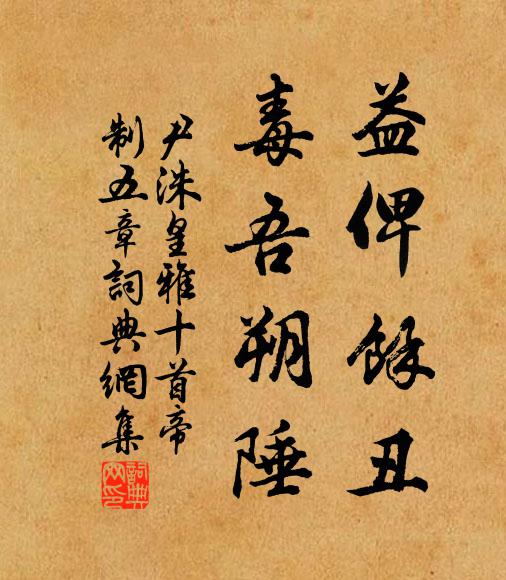 益俾餘丑
毒吾朔陲
尹洙皇雅十首帝
制五章詞典網集
詞典網印